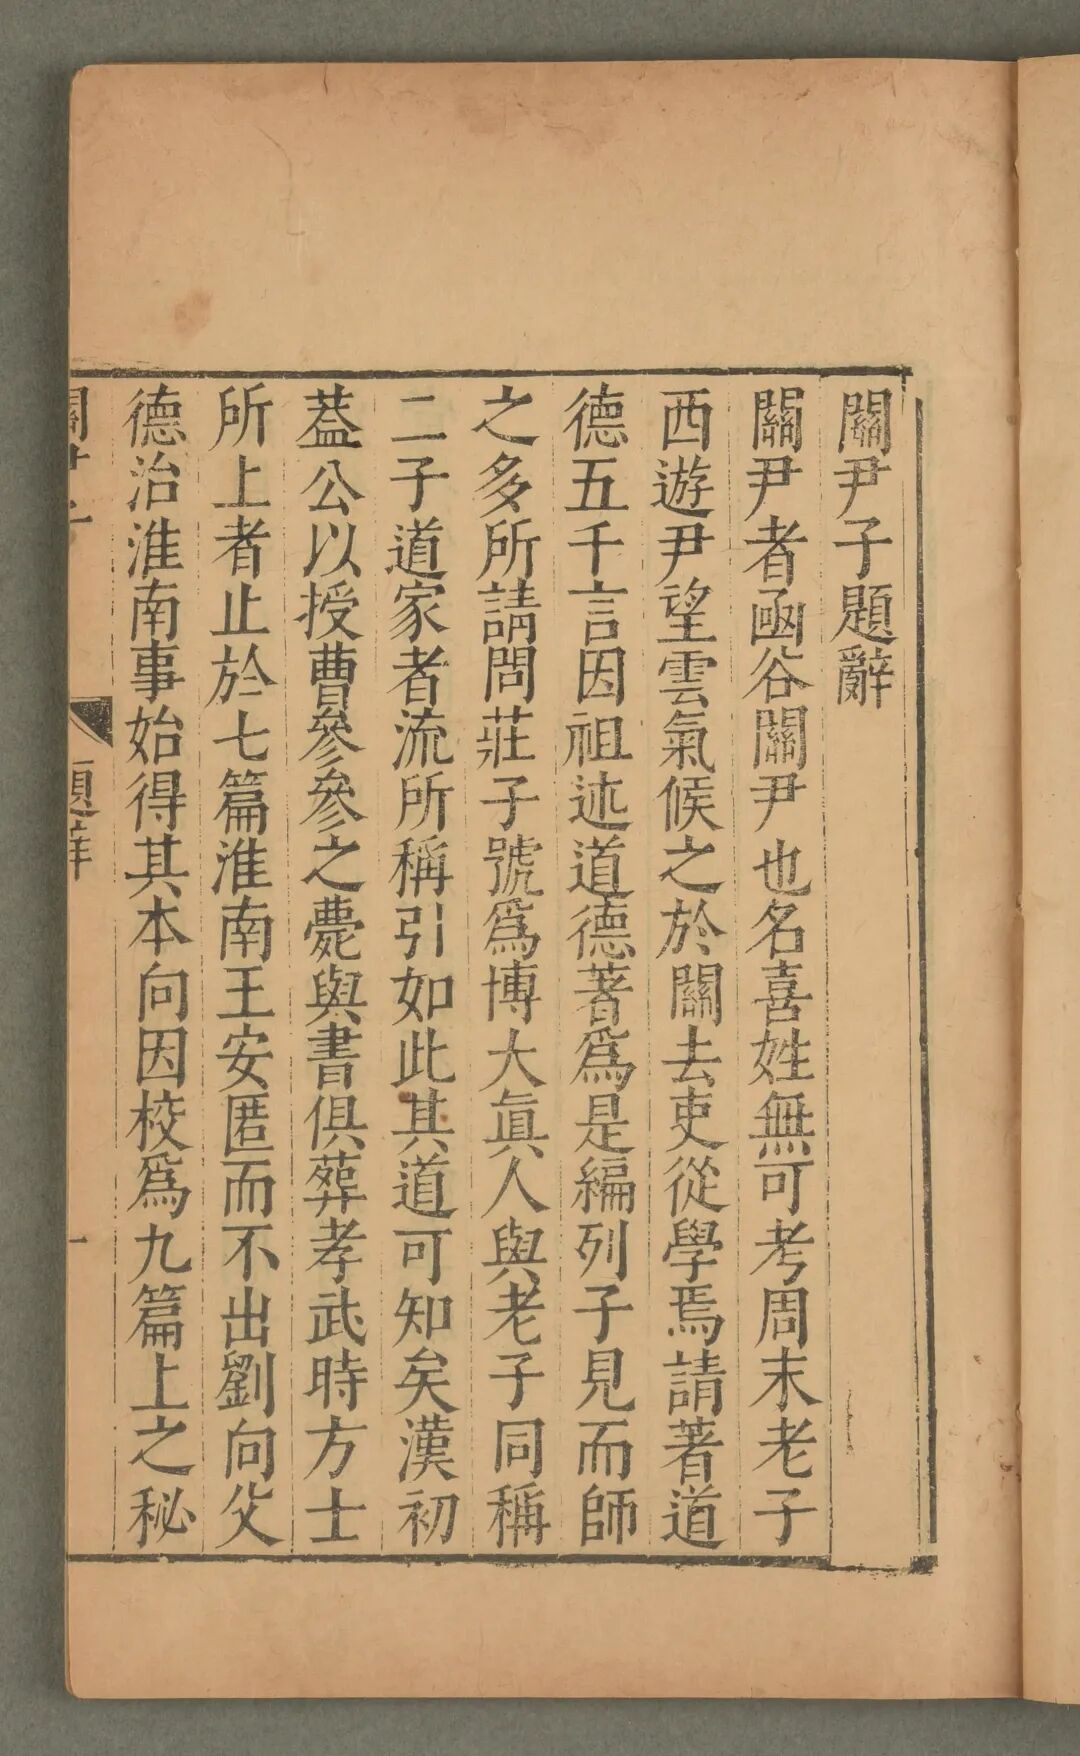 關尹子題辭
關尹者函谷關尹也名喜姓無可考周末老子
西遊尹望雲氣候之於關去吏從學焉請著道
德五千言因祖述道德著爲是編列子見而師
之多所請問莊子號爲博大眞人與老子同稱
二子道家者流所稱引如此其道可知矣漢初
蓋公以授曹參參之薨與書俱葬孝武時方士
所上者止於七篇淮南王安匿而不出劉向父
德治淮南事始得其本向因校爲九篇上之秘
關尹子
題辭
一